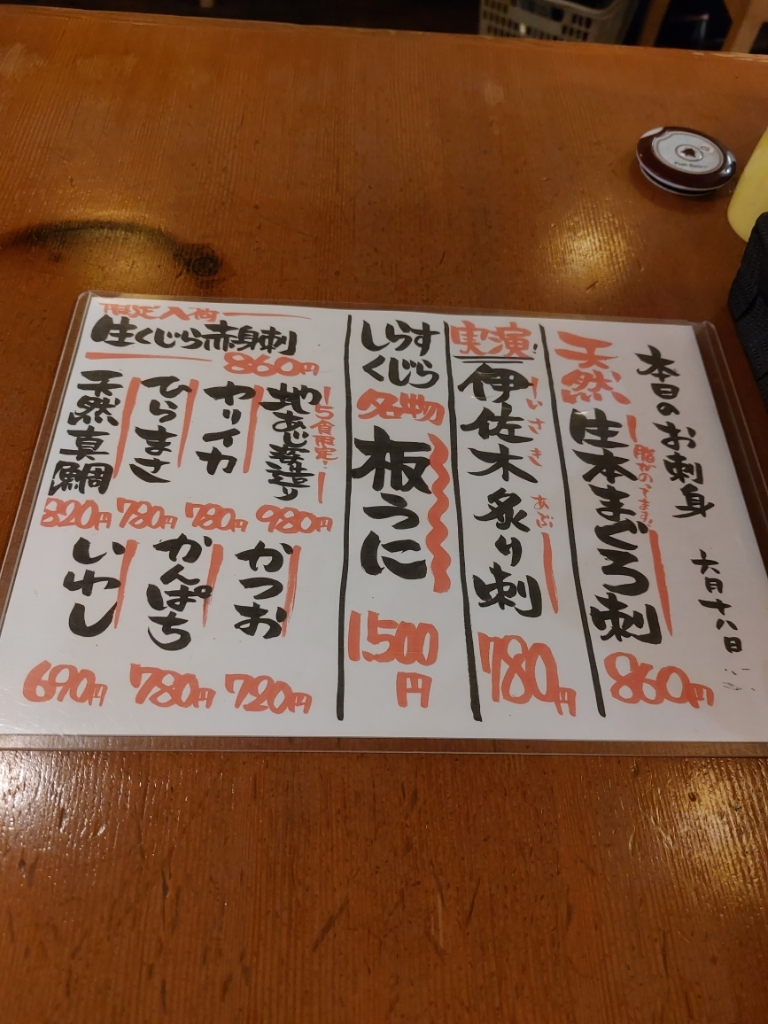 本日のお刺身
六月十八日
天然
生本まぐろ刺
脂がのってます!
860円
実演!
伊佐木炙り刺
いさき
あぶ
780円
しらすくじら
名物
板うに
1,500円
限定入荷
生くじら赤身刺
860円
地あじ姿造り
5食限定!
980円
ヤリイカ
780円
ひらまさ
780円
天然真鯛
820円
かつお
720円
かんぱち
780円
いわし
690円